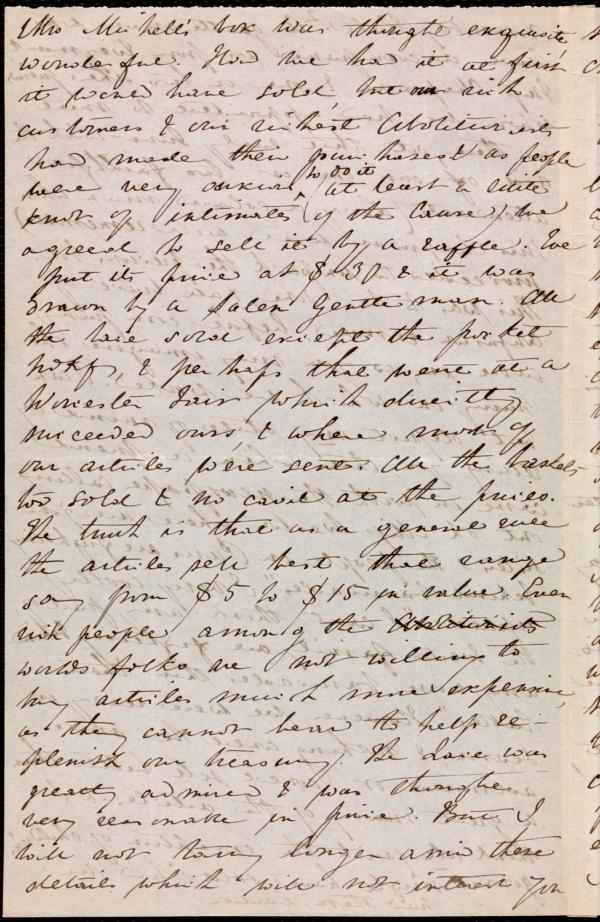 Mrs Michell's box was thought exquisite
wonderful. Had we had it at first
it would have sold, but our rich
customers & our richest Abolitionists
had made their purchases & as people
were very anxious to do it
(at least a little
knot of intimates of the Cause) we
agreed to sell it by a raffle. We
put its price at $30 & it was
drawn by a Salem Gentleman. All
the lace sold except the pocket
hdkfs, & perhaps that were at a
Worcester Fair which directly
succeeded ours, & where most of
our articles were sent. All the baskets
too sold & no cavil at the prices.
The truth is that as a general rule
the articles sell best that range
say from $5 to $15 in value. Even
rich people among the Abolitionists
worlds folks are not willing to
buy articles much more expensive,
as they cannot bear to help re-
plenish our treasury. The Lace was
greatly admired & was thought
very reasonable in price. But I
will not tarry longer amid these
details which will not interest you